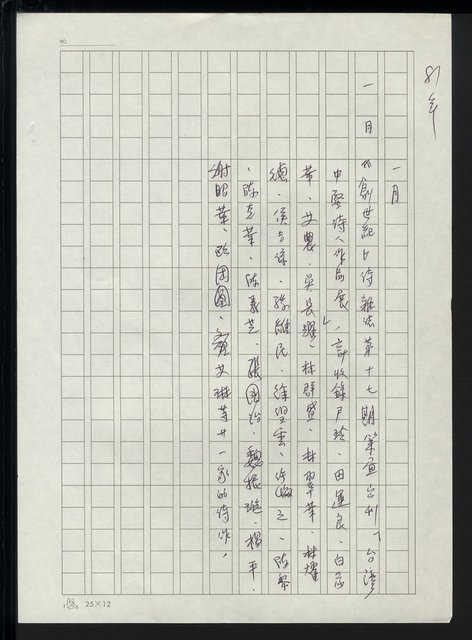 NO.
81年
一月
一月《創世紀》詩雜誌第十七期策畫出刊「台灣
中堅詩人作品展」,計收錄尹玲、田運良、白家
華、艾農、吳長耀、林群盛、林翠華、林燿
德、侯吉諒、孫維民、徐望雲、許悔之、陳黎
、陳克華、陳義芝、張國治、魏振璇、楊平、
謝昭華、歐團圓、艾琳等廿一家的詩作。
25×12